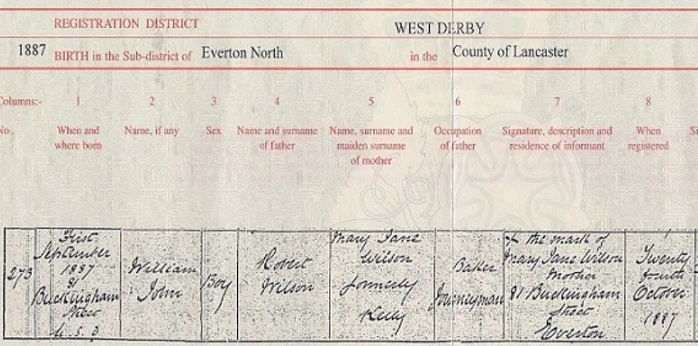 REGISTRATION DISTRICT WEST DERBY
1887 BIRTH in the Sub-district of Everton North in the County of Lancaster
Columns:- 1 2 3 4 5 6 7 8
No. When and where born Name, if any Sex Name and surname of father Name, surname and maiden surname of mother Occupation of father Signature, description and residence of informant When registered
273
First
September
1887
81
Buckingham
Street
U.S.D
William
John
Boy
Robert
Wilson
Mary Jane
Wilson
formerly
Kelly
Baker
Journeyman
X the mark of
Mary Jane Wilson
Mother
81 Buckingham
Street
Everton
Twenty
fourth
October
1887